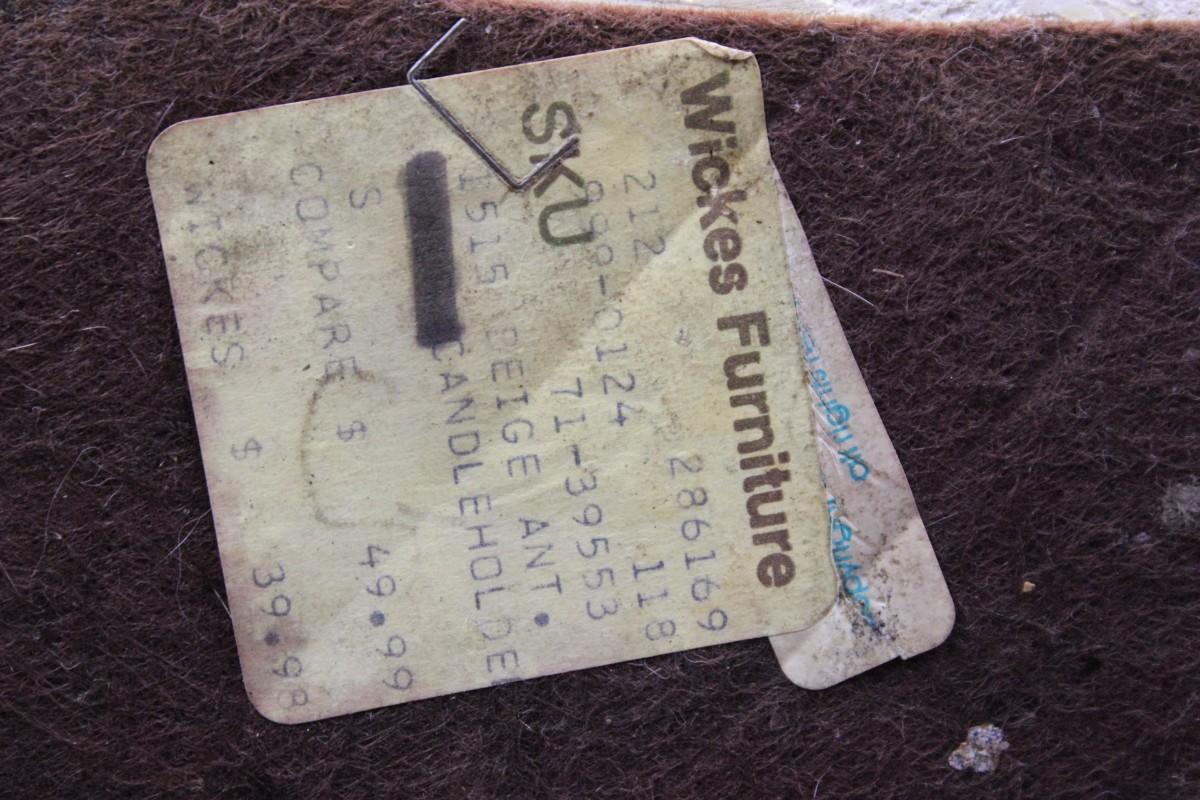 Wickes Furniture
286169
212 118
SKU 999-0124
71-39553
1515 BEIGE ANT.
CANDLEHOLDE
S
COMPARE $ 49.99
WICKES $ 39.98